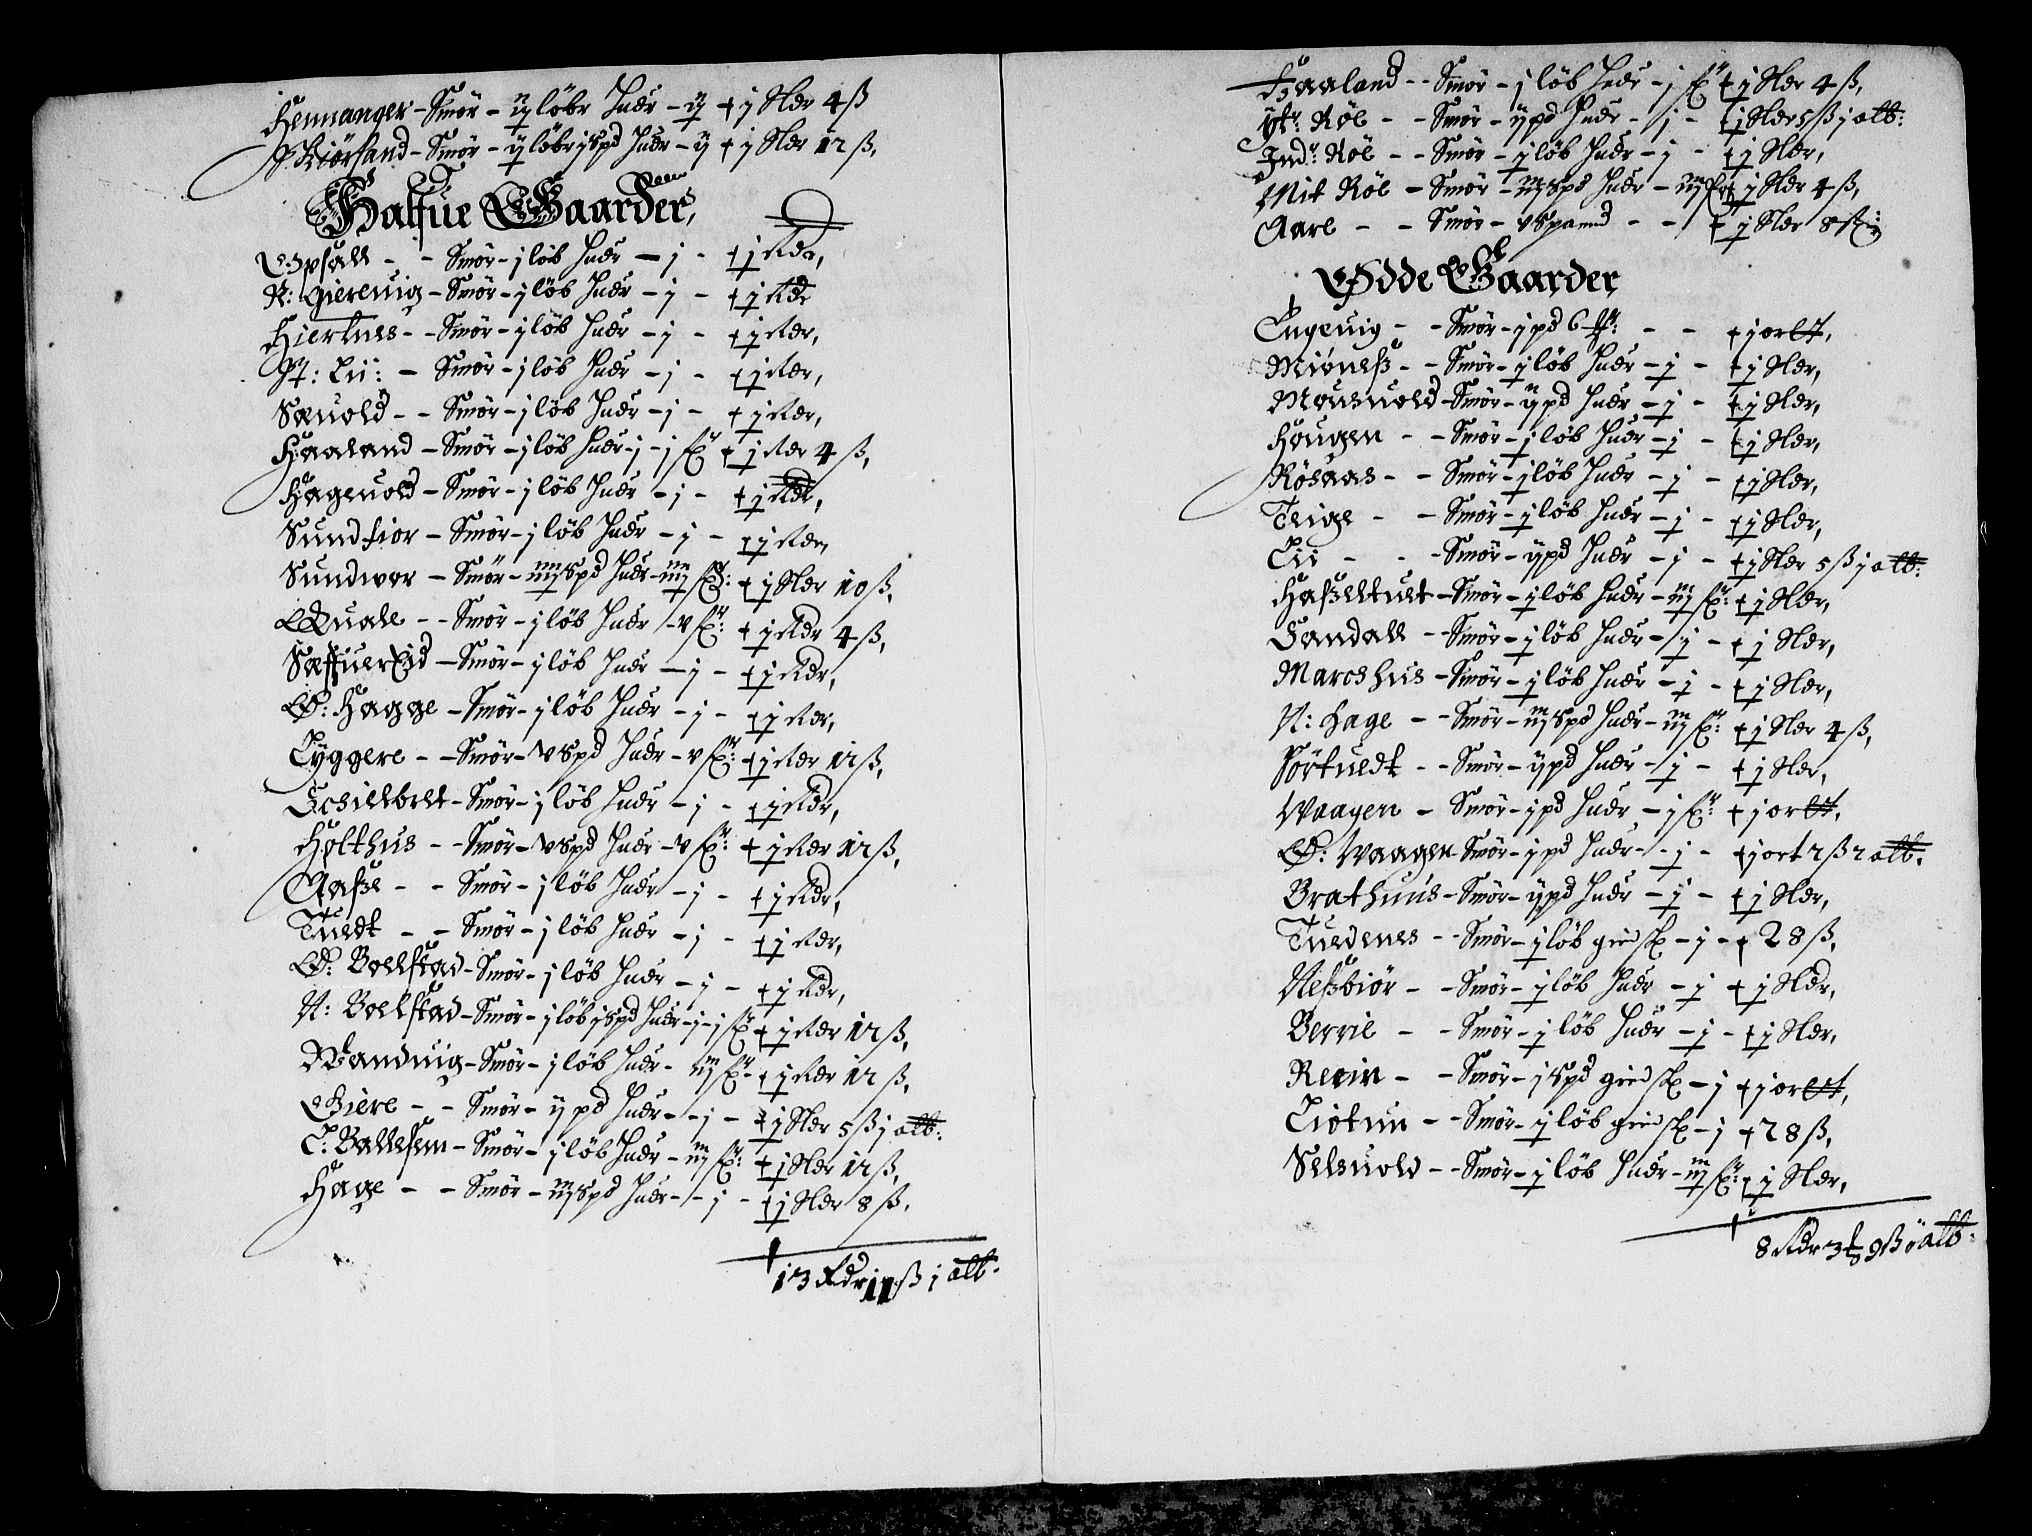 Hennanger - Smör - ij löbr Huder - ij + j Rdr 4 ß
Biörsand - Smör - ij löbr j spd Huder - ij + j Rdr 12 ß,
Halfue Gaarder,
Opsall - - Smör - j löb Huder - j - + j Rdr,
N: Gierevig - Smör - j löb Huder - j - + j Rdr
Hiertnes - - Smör - j löb Huder - j - + j Rdr,
Lii: - Smör - j löb Huder - j - + j Rdr,
Sæuold - - Smör - j löb Huder - j - + j Rdr,
Haaland - Smör - j löb Huder - j - j sk + j Rdr 4 ß,
Hageuold - Smör - j löb Huder - j - + j Rdr,
Sundfior - Smör - j löb Huder - j - + j Rdr,
Sundvor - Smör - iiij spd Huder - iiij sk: + j Rdr 10 ß,
Quale - - Smör - j löb Huder - v sk: + j Rdr 4 ß,
Sæffuer Eid - Smör - j löb Huder - j - + j Rdr,
Ø: Hagge - Smör - j löb Huder - j - + j Rdr,
Lyggere - - Smör - v spd Huder - v sk: + j Rdr 12 ß,
Eschielbret - Smör - j löb Huder - j - + j Rdr,
Holthus - - Smör - v spd Huder - v sk: + j Rdr 12 ß,
Aaße - - Smör - j löb Huder - j - + j Rdr,
Tuedt - - Smör - j löb Huder - j - + j Rdr,
Ø: Bolstad - Smör - j löb Huder - j - + j Rdr,
N: Bolstad - Smör - j löb j spd Huder - j - j sk + j Rdr 12 ß,
Wandvig - Smör - j löb Huder - iij sk - + j Rdr 12 ß,
Giere - - Smör - ij pd Huder - - j - + j Rdr 5 ß j alb:
L: Ballesem - Smör - j löb Huder - iij sk: + j Rdr 12 ß,
Hage - - Smör - iij spd Huder - - j - + j Rdr 8 ß,
13 Rdr 11 ß j alb.
Haaland - - Smör - j löb Huder - j sk + j Rdr 4 ß,
Ytr: Röl - - Smör - ij pd Huder - j - + j Rdr 5 ß j alb:
Indr: Röl - - Smör - j löb Huder - j - + j Rdr,
Mit Röl - Smör - iij spd Huder - iij sk + j Rdr 4 ß,
Aare - - Smör - v spannd - - + j Rdr 8 ß
Ødde Gaarder
Engevig - - Smör - j pd 6 - - + j ort,
Miöneß - - Smör - j löb Huder - j - + j Rdr,
Mousuold - Smör - ij pd Huder - j - + j Rdr,
Hougen - - Smör - j löb Huder - j - + j Rdr,
Rösaas - - Smör - j löb Huder - j - + j Rdr,
Teige - - Smör - j löb Huder - j - + j Rdr,
Lii - - - Smör - ij pd Huder - j - + j Rdr 5 ß j alb:
Haßeltuet - Smör - j löb Huder - iij sk: + j Rdr,
Sandall - Smör - j löb Huder - j - + j Rdr,
Marcshus - Smör - j löb Huder - j - + j Rdr,
N: Hage - - Smör - iij spd Huder - iij sk: + j Rdr 4 ß,
Sörtuedt - - Smör - ij pd Huder - j - + j Rdr,
Waagen - Smör - j pd Huder - j sk: + j ort,
Ø: Waagen - Smör - j pd Huder - - j - + j ort 2 ß 2 alb:
Brathuus - Smör - ij pd Huder - j - + j Rdr,
Tuedenes - - Smör - j löb gied sk - j - + 28 ß,
Neßbiör - - Smör - j löb Huder - j + j Rdr,
Berrie - - Smör - j löb Huder - j - + j Rdr,
Revin - - Smör - j spd gied sk - j + j ort,
Tiotun - - Smör - j löb gied sk - j + 28 ß,
Seleuold - - Smör - j löb Huder - iij sk: + j Rdr,
8 Rdr 3 9 ß alb.